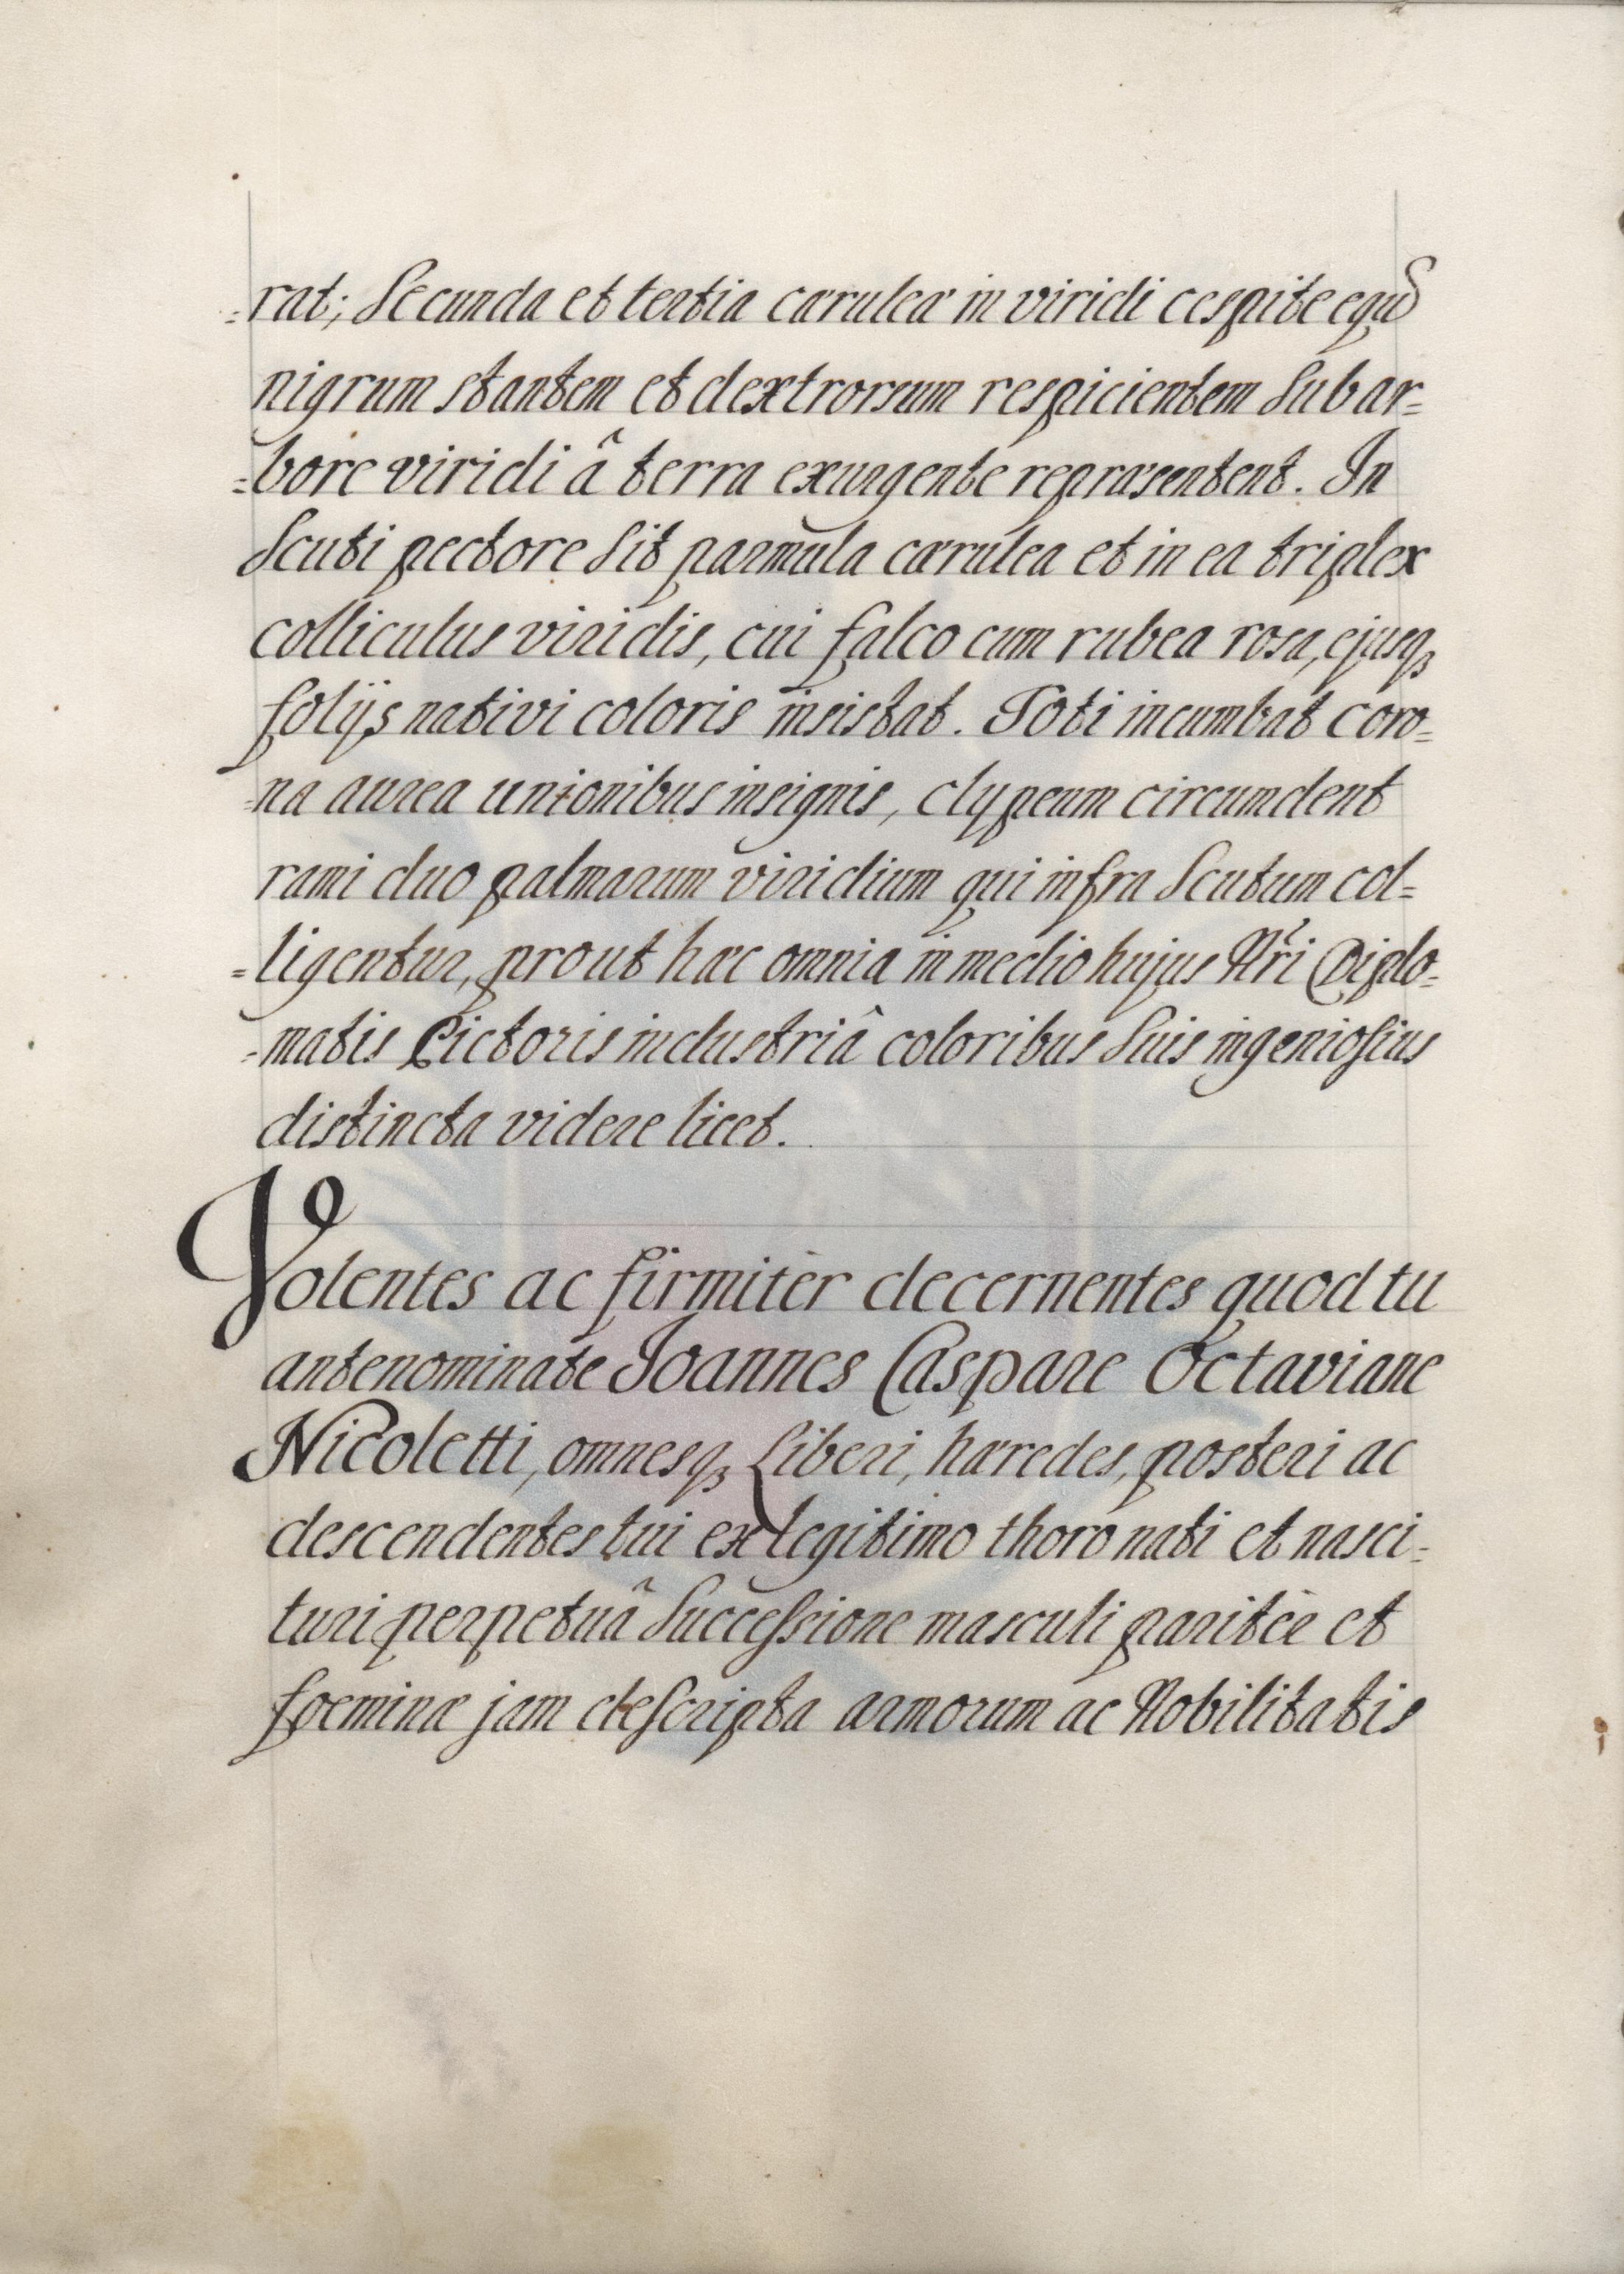 =rat; Secunda et tertia cærulea in viridi cespite equū
nigrum stantem et dextrorsum respicientem sub ar=
=bore viridi â terra exurgente repræsentent. In
Scuti pectore sit parmula cærulea et in ea triplex
colliculus viridis, cui falco cum rubea rosa, ejusq₃
folijs nativi coloris insistat. Toti incumbat coro=
=na aurea unionibus insignis, clypeum circumdent
rami duo palmarum viridium qui infra Scutum col=
=ligentur, prout hæc omnia in medio hujus Nr̃i Diplo=
=matis Pictoris industriâ coloribus suis ingeniosius
distincta videre licet.
Volentes ac firmitèr decernentes quod tu
antenominate Joannes Caspare Octaviane
Nicoletti, omnesq₃ Liberi, hæredes, posteri ac
descendentes tui ex legitimo thoro nati et nasci=
turi perpetuâ Successione masculi paritèr et
foeminæ jam descripta armorum ac Nobilitatis